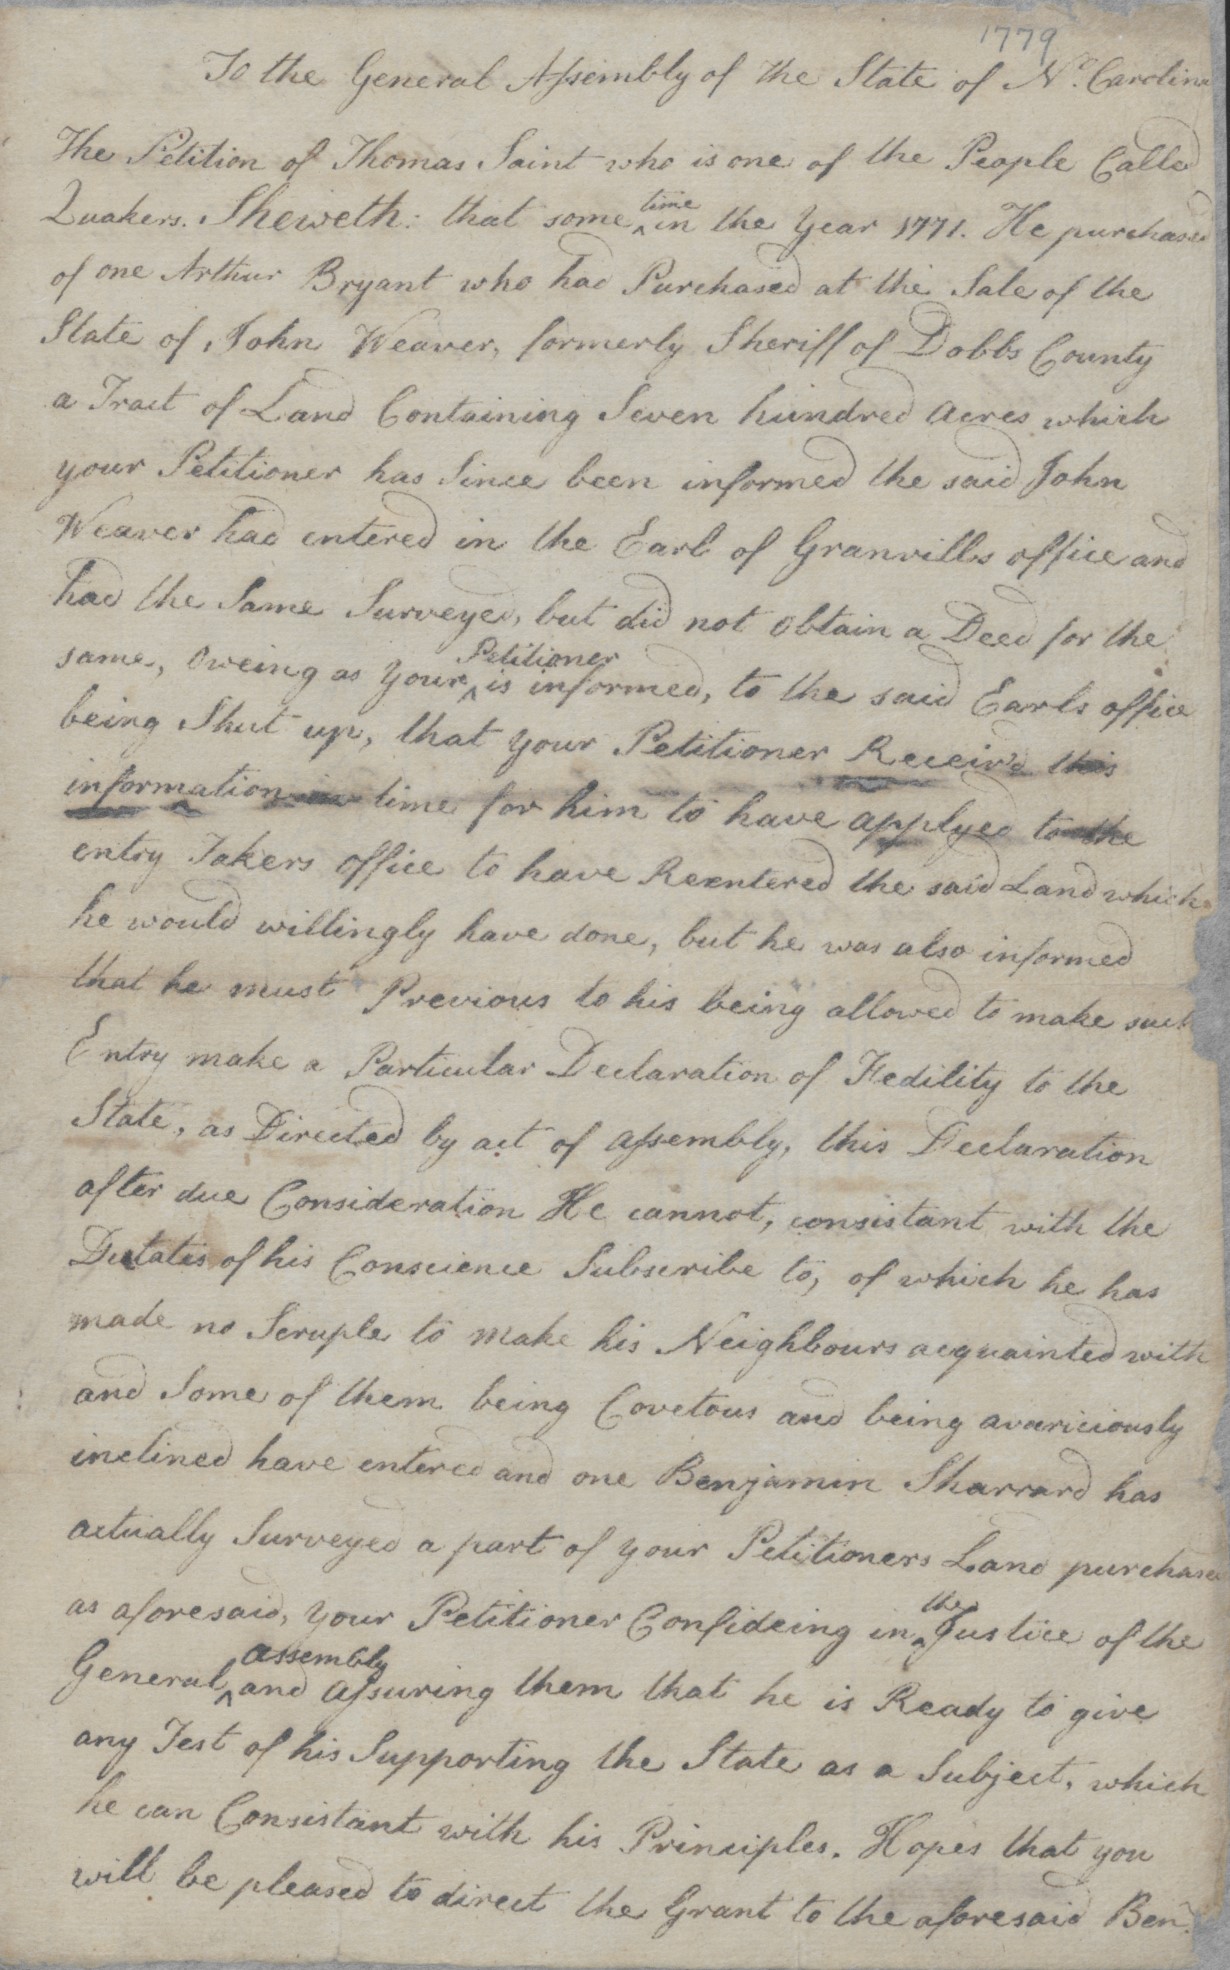 1779
To the General Assembly of the State of No. Carolina
The Petition of Thomas Saint who is one of the People Called
Quakers. Sheweth: that some time in the Year 1771. He purchased
of one Arthur Bryant who had Purchased at the Sale of the
State of John Weaver, formerly Sheriff of Dobbs County
a Tract of Land Containing Seven hundred Acres which
your Petitioner has Since been informed the said John
Weaver had entered in the Earl of Granvills office and
had the Same Surveyed, but did not Obtain a Deed for the
same, Oweing as Your Petitioner is informed, to the said Earls office
being Shut up, that your Petitioner Receiv'd this
information in time for him to have applyed to the
entry Takers office to have Reentered the said Land which
he would willingly have done, but he was also informed
that he must Previous to his being allowed to make such
Entry make a Particular Declaration of Fedility to the
State, as Directed by act of assembly, this Declaration
after due Consideration He cannot, consistant with the
Dictates of his Conscience Subscribe to, of which he has
made no Scruple to make his Neighbours acquainted with
and Some of them being Covetous and being avariciously
inclined have entered and one Benjamin Sharrard has
actually Surveyed a part of your Petitioners Land purchased
as aforesaid, Your Petitioner Confideing in the Justice of the
General assembly and assuring them that he is Ready to give
any Test of his Supporting the State as a Subject, which
he can Consistant with his Principles. Hopes that you
will be pleased to direct the Grant to the aforesaid Ben.